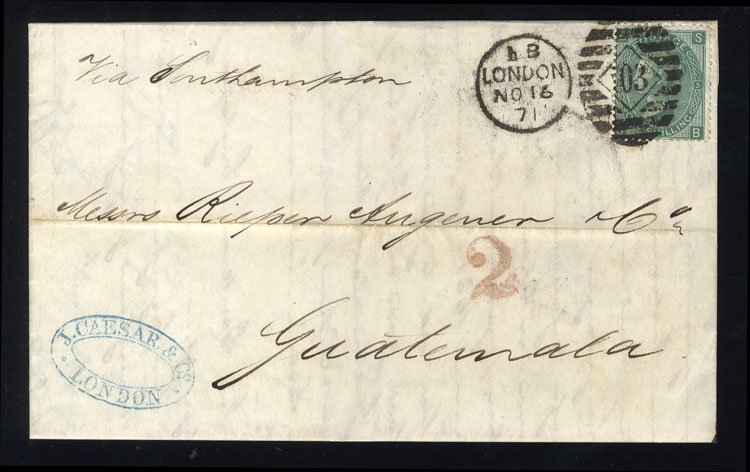 Via Southampton
LB
LONDON
NO 16
71
03
POSTAGE
SHILLING
S
B
Messrs Rieper Augener & Co
2
Guatemala
J. CAESAR & Co.
LONDON